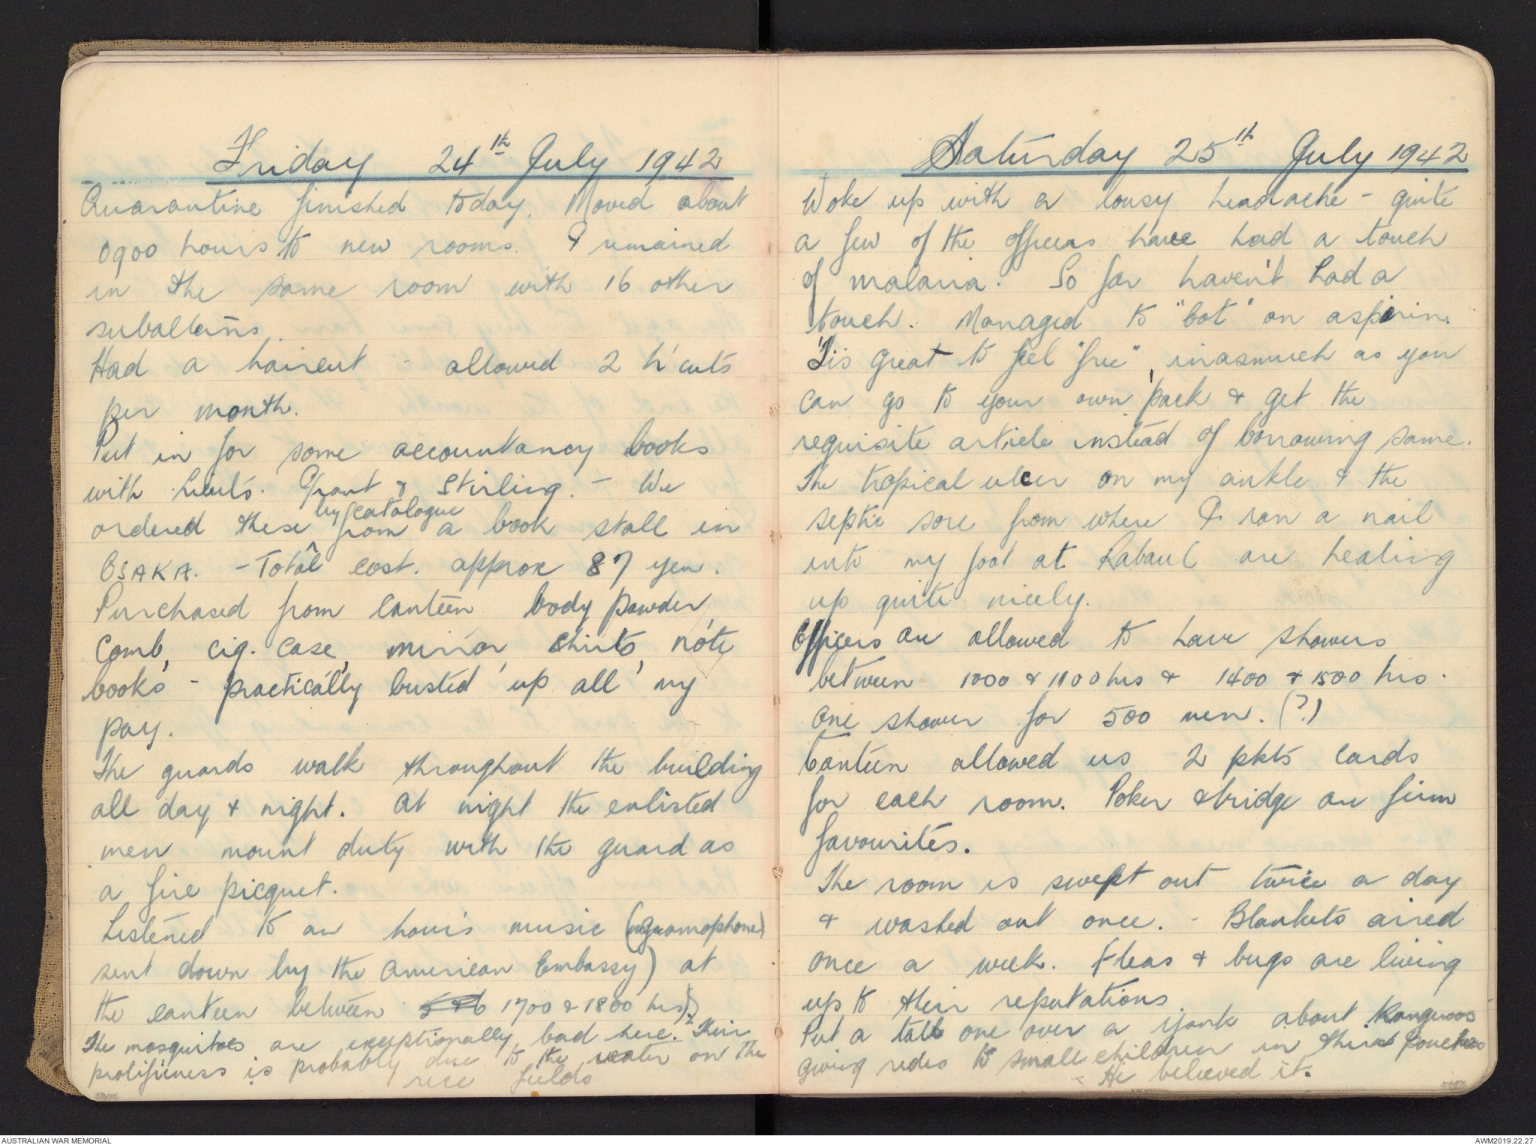 Friday 24th July 1942
Quarantine finished today. Moved about
0900 hours to new rooms. I remained
in the same room with 16 other
subalterns.
Had a haircut - allowed 2 h'cuts
per month.
Put in for some accountancy books
with Lieuts. Grant & Stirling. - We
by catalogue
ordered these from a book stall in
OSAKA. - Total cost. approx 87 yen.
Purchased from canteen body powder
comb, cig. case, mirror, shirts, note
books - practically busted up all my
pay.
The guards walk throughout the building
all day & night. At night the enlisted
men mount duty with the guard as
a fire picquet.
Listened to an hour's music (gramophone)
sent down by the American Embassy) at
the canteen between 5 & 6 1700 & 1800 hrs.
The mosquitoes are exceptionally bad here. Their
prolificness is probably due to the water on the
rice fields
Saturday 25th July 1942
Woke up with a lousy headache - quite
a few of the officers have had a touch
of malaria. So far haven't had a
touch. Managed to "bot" an aspirin.
'Tis great to feel "free", inasmuch as you
can go to your own pack & get the
requisite article instead of borrowing same.
The tropical ulcer on my ankle & the
septic sore from where I ran a nail
into my foot at Rabaul are healing
up quite nicely.
Officers are allowed to have showers
between 1000 & 1100 hrs & 1400 & 1500 hrs.
One shower for 500 men. (?)
Canteen allowed us 2 pkts cards
for each room. Poker & bridge are firm
favourites.
The room is swept out twice a day
& washed out once. - Blankets aired
once a week. Fleas & bugs are living
up to their reputations.
Put a tall one over a yank about Kangaroos
giving rides to small children in their pouches
- He believed it.
AUSTRALIAN WAR MEMORIAL
AWM2019.22.27